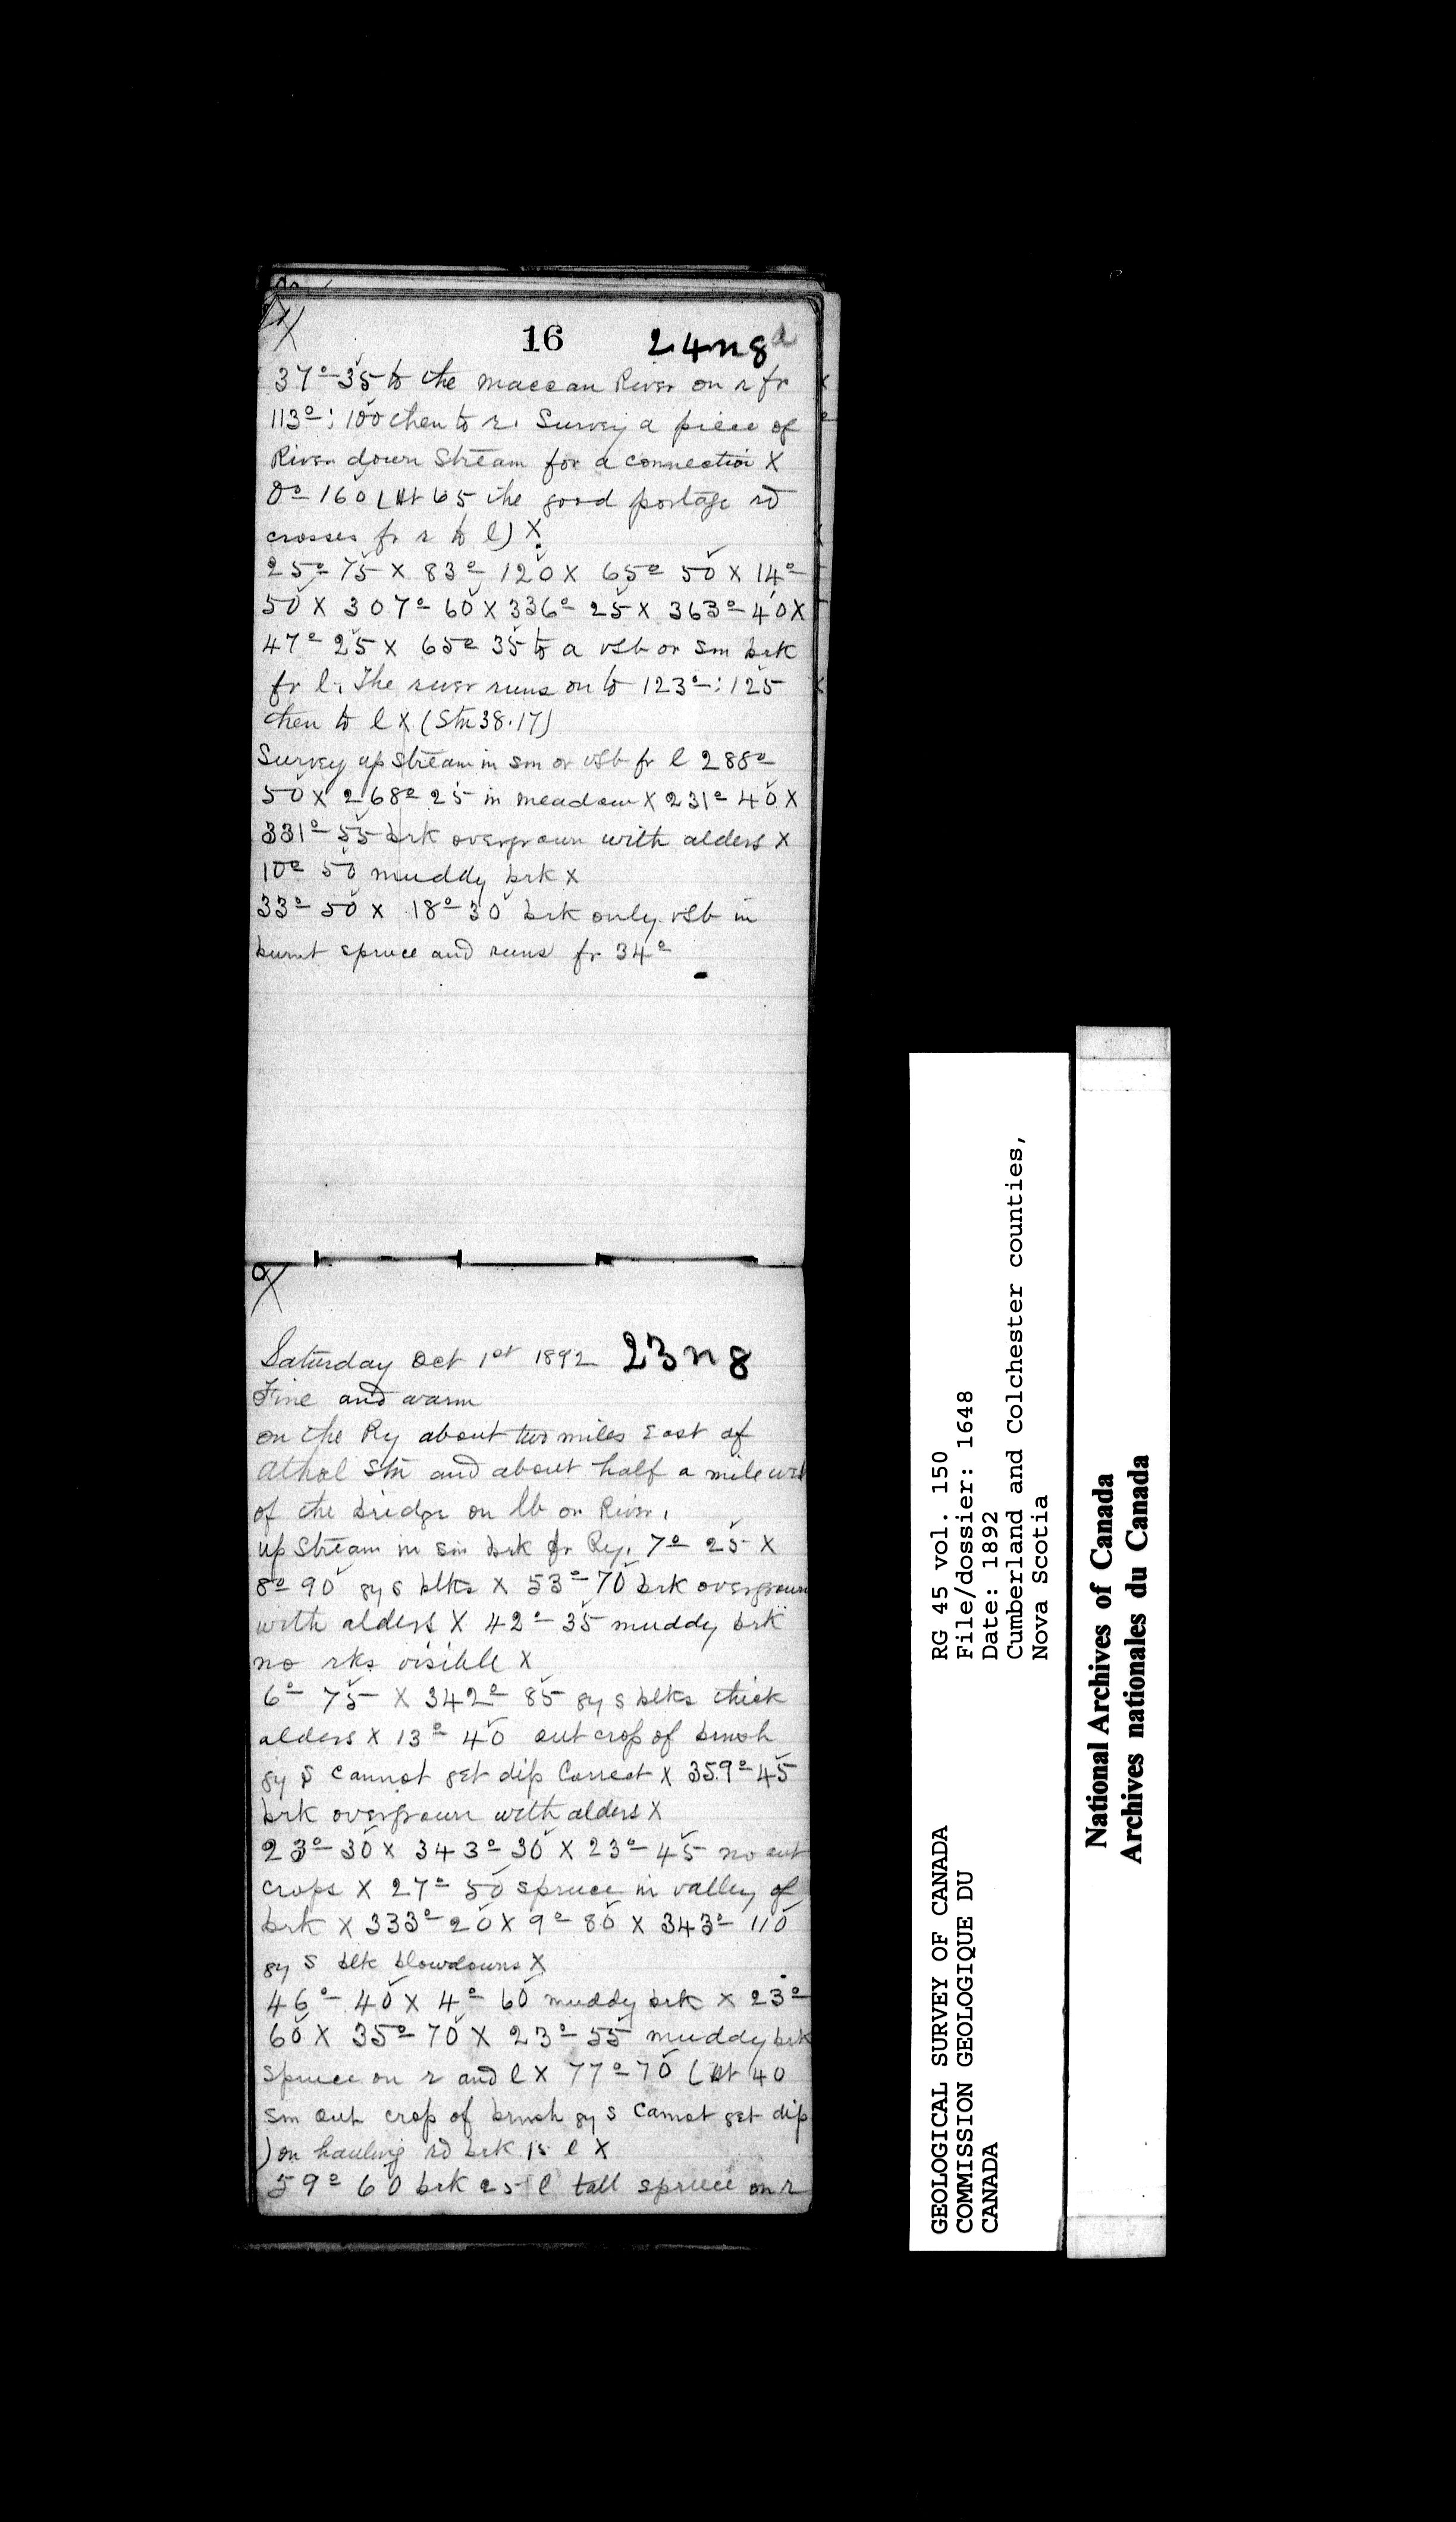 16 24n8
37º 35 to the maccan River on r fr
113º : 100 then to r. Survey a piece of
River down Stream for a connection X
0º 160 (At 65 the good portage rd
crosses fr r to l) X
25º 75 X 83º 120 X 65º 50 X 14º
50 X 307º 60 X 336º 25 X 363º 40 X
47º 25 X 65º 35 to a vsb or sm brk
fr l. The river runs on to 123º : 125
then to l X (Stn 38.17)
Survey up stream in sm or vsb fr l 288º
50 X 268º 25 in meadow X 231º 40 X
331º 55 brk overgrown with alders X
10º 50 muddy brk X
33º 50 X 18º 30 brk only vsb in
burnt spruce and runs fr 34º
Saturday Oct 1st 1892 23n8
Fine and warm
on the Ry about two miles East of
Athol Stn and about half a mile
of the bridge on lb or River.
up Stream in sm brk fr Ry. 7º 25 X
8º 90 gy s blks X 53º 70 brk overgrown
with alders X 42º 35 muddy brk
no rks visible X
6º 75 X 342º 85 gy s blks thick
alders X 13º 40 out crop of brnsh
gy S cannot get dip Correct X 359º 45
brk overgrown with alders X
23º 30 X 343º 30 X 23º 45 no out
crops X 27º 50 spruce in valley of
brk X 333º 20 X 9º 80 X 343º 110
gy S blk blowdowns X
46º 40 X 4º 60 muddy brk X 23º
60 X 35º 70 X 23º 55 muddy brk
Spruce on r and l X 77º 70 (At 40
sm out crop of brnsh gy S Cannot get dip
) on hauling rd brk 15 l X
59º 60 brk 25 l tall spruce on r
GEOLOGICAL SURVEY OF CANADA
COMMISSION GEOLOGIQUE DU
CANADA
RG 45 vol. 150
File/dossier: 1648
Date: 1892
Cumberland and Colchester counties,
Nova Scotia
National Archives of Canada
Archives nationales du Canada